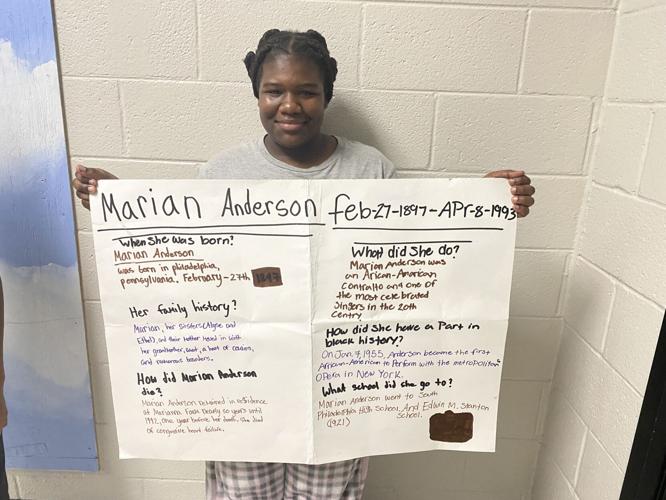 Marian Anderson feb-27-1897-APr-8-1993
When She was born?
Marian Anderson
was born in philadelphia,
pennsylvania, February-27th 1897
Her family history?
Marian, her sisters(Alyse and
Ethel), and their mother lived in with
her grandmother, aunt, a host of cousins,
and numerous boarders.
How did Marian Anderson
die?
Marian Anderson remained in residence
at Marianna Farm nearly 50 years until
1992, one year before her death. She died
of congestive heart failure.
What did She do?
Marian Anderson was
an African-American
Contralto and one of
the most celebrated
Singers in the 20th
Centry.
How did She have a Part in
black history?
On Jan. 7, 1955, Anderson became the first
African-American to Perform with the metropolitan
Opera in New York.
What school did she go to?
Marian Anderson went to South
Philadelphia High School. And Edwin M. Stanton
School.
(1921)